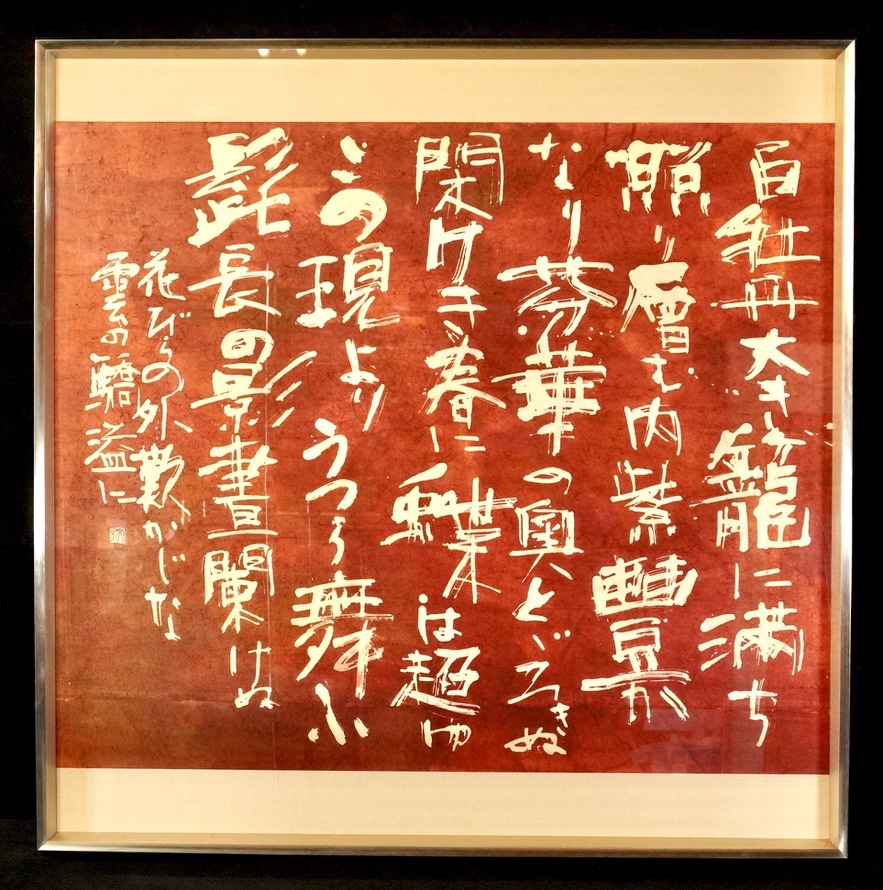 白牡丹大き籠に満ち
照り層む内紫豐か
なり芬華の奥とどろきぬ
閑けき春に蝶は超ゆ
この現よりうつら舞ふ
髭長の影晝闌けぬ
花びらの外歎かじな
雲の驕溢に